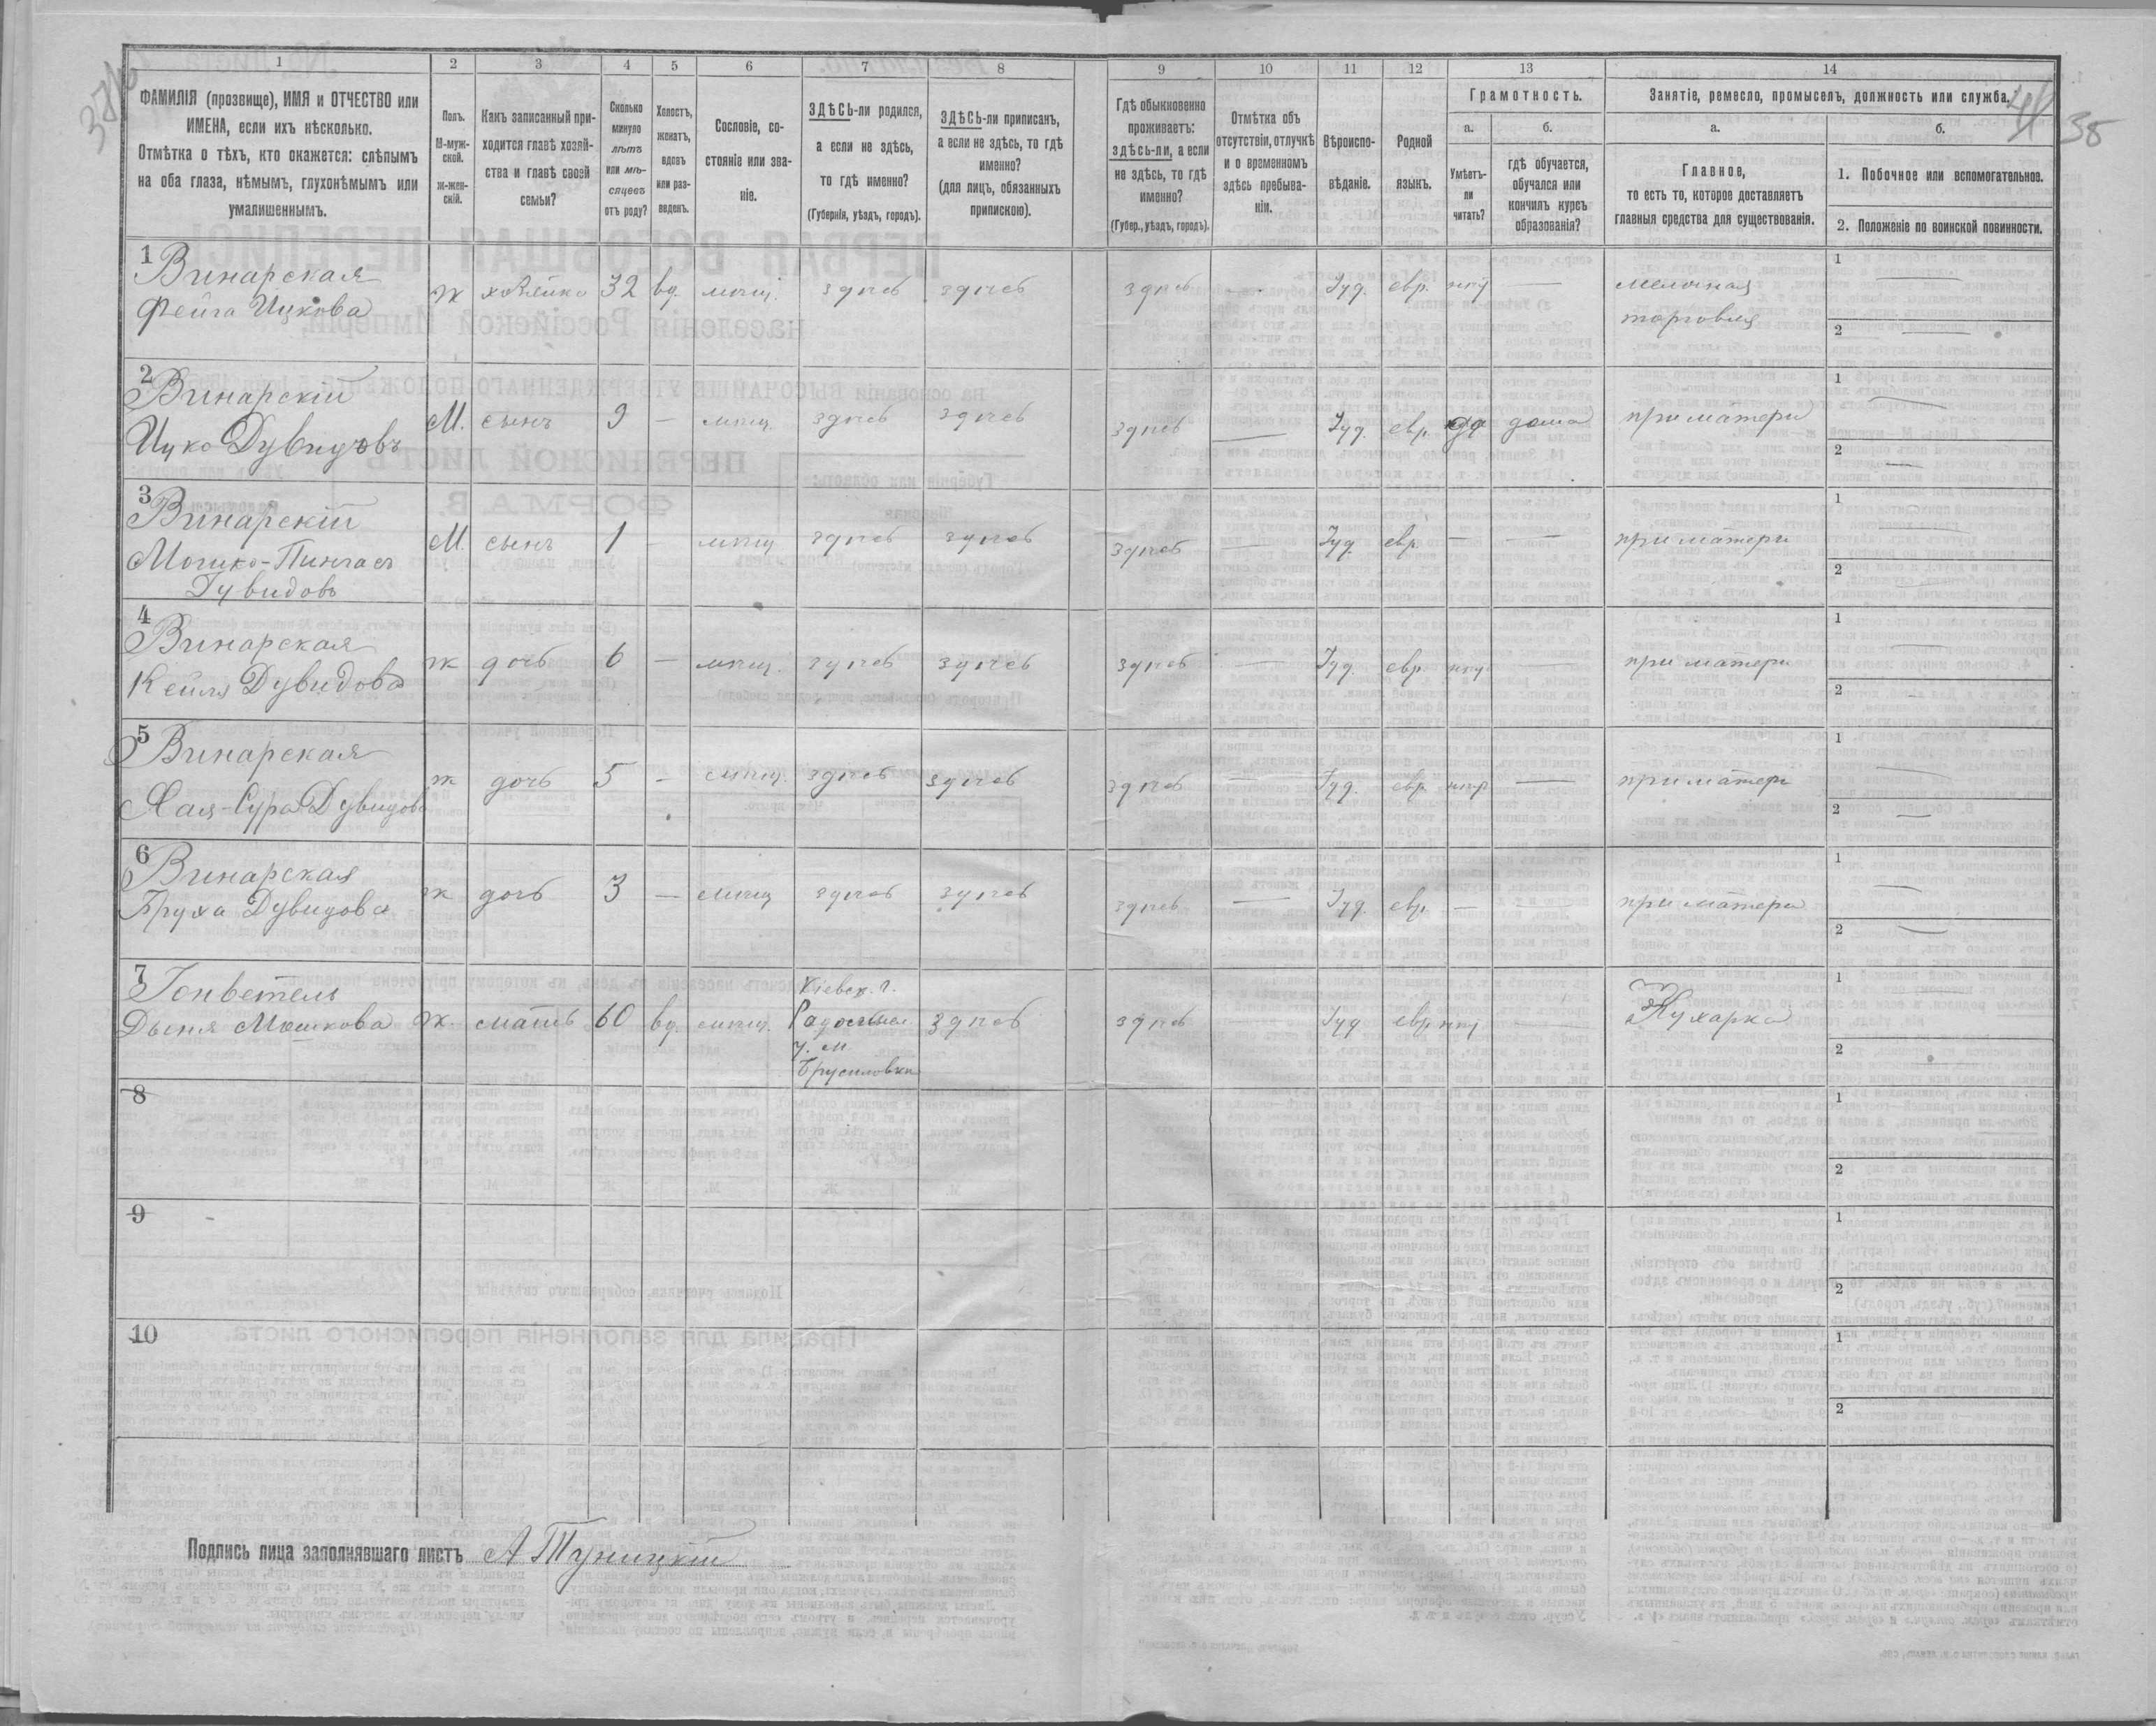 38
1
2
3
4
5
6
7
8
9
10
11
12
13
14
ФАМИЛІЯ (прозвище), ИМЯ и ОТЧЕСТВО или
ИМЕНА, если ихъ нѣсколько.
Отмѣтка о тѣхъ, кто окажется: слѣпымъ
на оба глаза, нѣмымъ, глухонѣмымъ или
умалишеннымъ.
Полъ.
М-муж-
ской.
ж-жен-
скій.
Какъ записанный при-
ходится главѣ хозяй-
ства и главѣ своей
семьи?
Сколько
минуло
лѣтъ
или мѣ-
сяцевъ
отъ роду?
Холостъ,
женатъ,
вдовъ
или раз-
веденъ.
Сословіе, со-
стояніе или зва-
ніе.
ЗДѢСЬ-ли родился,
а если не здѣсь,
то гдѣ именно?
(Губернія, уѣздъ, городъ).
ЗДѢСЬ-ли приписанъ,
а если не здѣсь, то гдѣ
именно?
(для лицъ, обязанныхъ
припискою).
Гдѣ обыкновенно
проживаетъ:
здѣсь-ли, а если
не здѣсь, то гдѣ
именно?
(Губер., уѣздъ, городъ).
Отмѣтка объ
отсутствіи, отлучкѣ
и о временномъ
здѣсь пребыва-
ніи.
Вѣроиспо-
вѣданіе.
Родной
языкъ.
Грамотность.
а.
Умѣетъ-
ли
читать?
б.
гдѣ обучается,
обучался или
кончилъ курсъ
образованія?
Занятіе, ремесло, промыселъ, должность или служба.
а.
Главное,
то есть то, которое доставляетъ
главныя средства для существованія.
б.
1. Побочное или вспомогательное.
2. Положеніе по воинской повинности.
38
1 Винарская
Фейга Ицкова
ж хозяйка 32 вд. мѣщ. здѣсь здѣсь здѣсь — Іуд. евр. нѣт —
мелочная
торговля
1 —
2 —
2 Винарскій
Ицко Дувидовъ
М. сынъ 9 — мѣщ. здѣсь здѣсь здѣсь — Іуд. евр. да дома при матери
1 —
2 —
3 Винарскій
Мошко-Пинхасъ
Дувидовъ
М. сынъ 1 - мѣщ здѣсь здѣсь здѣсь — Іуд. евр. — — при матери
1 —
2
4 Винарская
Кейля Дувидова
ж дочь 6 — мѣщ. здѣсь здѣсь здѣсь — Іуд. евр. нѣт — при матери
1
2 -
5 Винарская
Хая-Сура Дувидова
ж дочь 5 - мѣщ. здѣсь здѣсь здѣсь — Іуд. евр. нѣт — при матери
1 —
2 —
6 Винарская
Бруха Дувидова
ж дочь 3 — мѣщ здѣсь здѣсь здѣсь — Іуд. евр. — при матери
1 —
2 —
7
Мошкова ж. мать 60 вд. мѣщ.
Кіевск. г.
Радомысл.
у. м.
Брусиловка
здѣсь здѣсь Іуд евр нѣт — Кухарка
1
2
8
1
2
9
1
2
10
1
2
Подпись лица заполнявшаго листъ А Туницкій